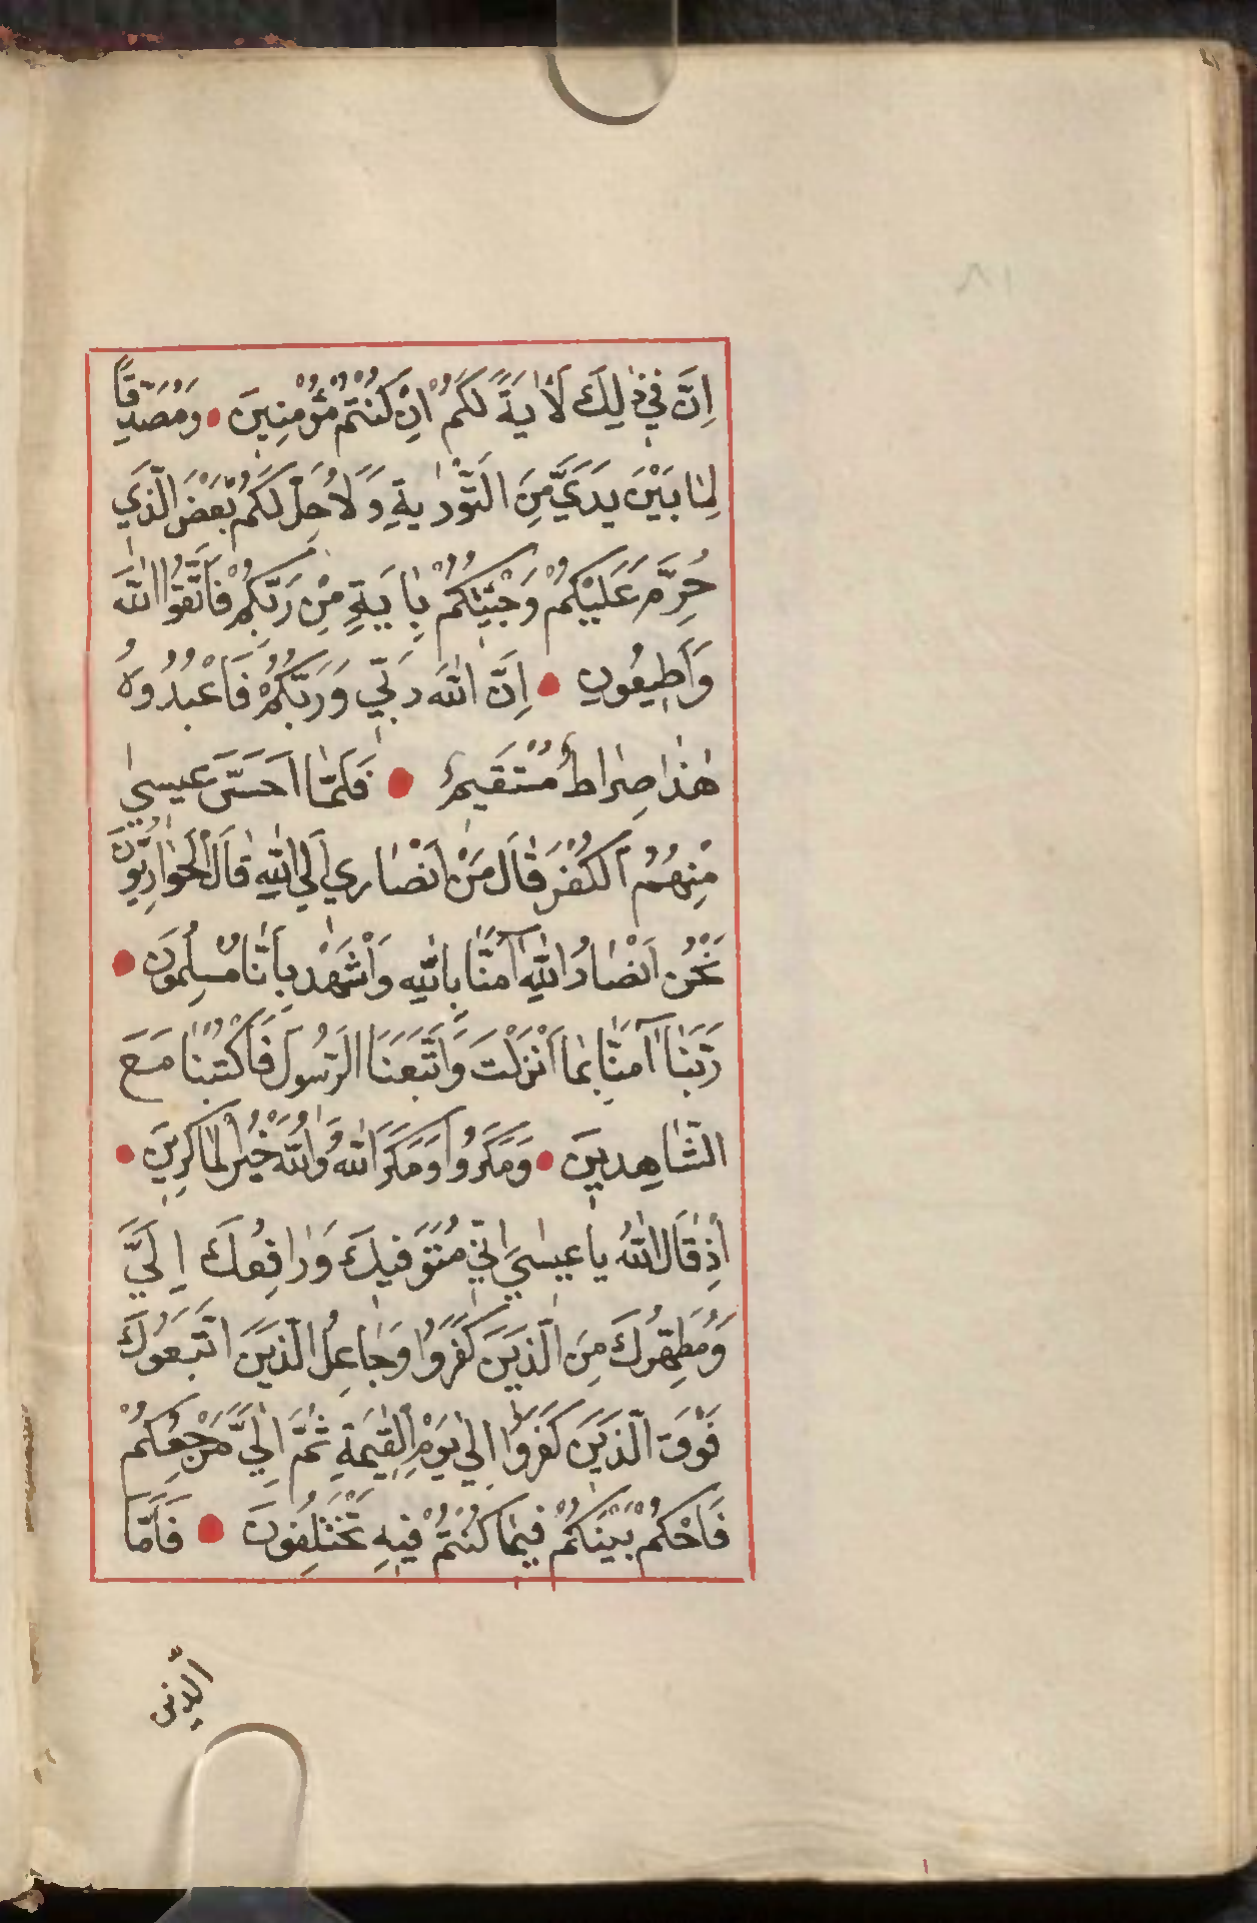 اِنَّ فِي ذٰلِكَ لَاٰيَةً لَكُمْ اِنْ كُنْتُمْ مُؤْمِنِينَ • وَمُصَدِّقًا
لِمَا بَيْنَ يَدَيَّ مِنَ التَّوْرٰيةِ وَلِاُحِلَّ لَكُمْ بَعْضَ الَّذِي
حُرِّمَ عَلَيْكُمْ وَجِئْتُكُمْ بِاٰيَةٍ مِنْ رَبِّكُمْ فَاتَّقُوا اللّٰهَ
وَاَطِيعُونِ • اِنَّ اللّٰهَ رَبِّي وَرَبُّكُمْ فَاعْبُدُوهُ
هٰذَا صِرَاطٌ مُسْتَقِيمٌ • فَلَمَّا اَحَسَّ عِيسٰي
مِنْهُمُ الْكُفْرَ قَالَ مَنْ اَنْصَارِي اِلَي اللّٰهِ قَالَ الْحَوَارِيُّونَ
نَحْنُ اَنْصَارُ اللّٰهِ اٰمَنَّا بِاللّٰهِ وَاشْهَدْ بِاَنَّا مُسْلِمُونَ •
رَبَّنَا اٰمَنَّا بِمَا اَنْزَلْتَ وَاتَّبَعْنَا الرَّسُولَ فَاكْتُبْنَا مَعَ
الشَّاهِدِينَ • وَمَكَرُوا وَمَكَرَ اللّٰهُ وَاللّٰهُ خَيْرُ الْمَاكِرِينَ •
اِذْ قَالَ اللّٰهُ يَا عِيسٰي اِنِّي مُتَوَفِّيكَ وَرَافِعُكَ اِلَيَّ
وَمُطَهِّرُكَ مِنَ الَّذِينَ كَفَرُوا وَجَاعِلُ الَّذِينَ اتَّبَعُوكَ
فَوْقَ الَّذِينَ كَفَرُوا اِلٰي يَوْمِ الْقِيٰمَةِ ثُمَّ اِلَيَّ مَرْجِعُكُمْ
فَاَحْكُمُ بَيْنَكُمْ فِيمَا كُنْتُمْ فِيهِ تَخْتَلِفُونَ • فَاَمَّا
الَّذين
٨١